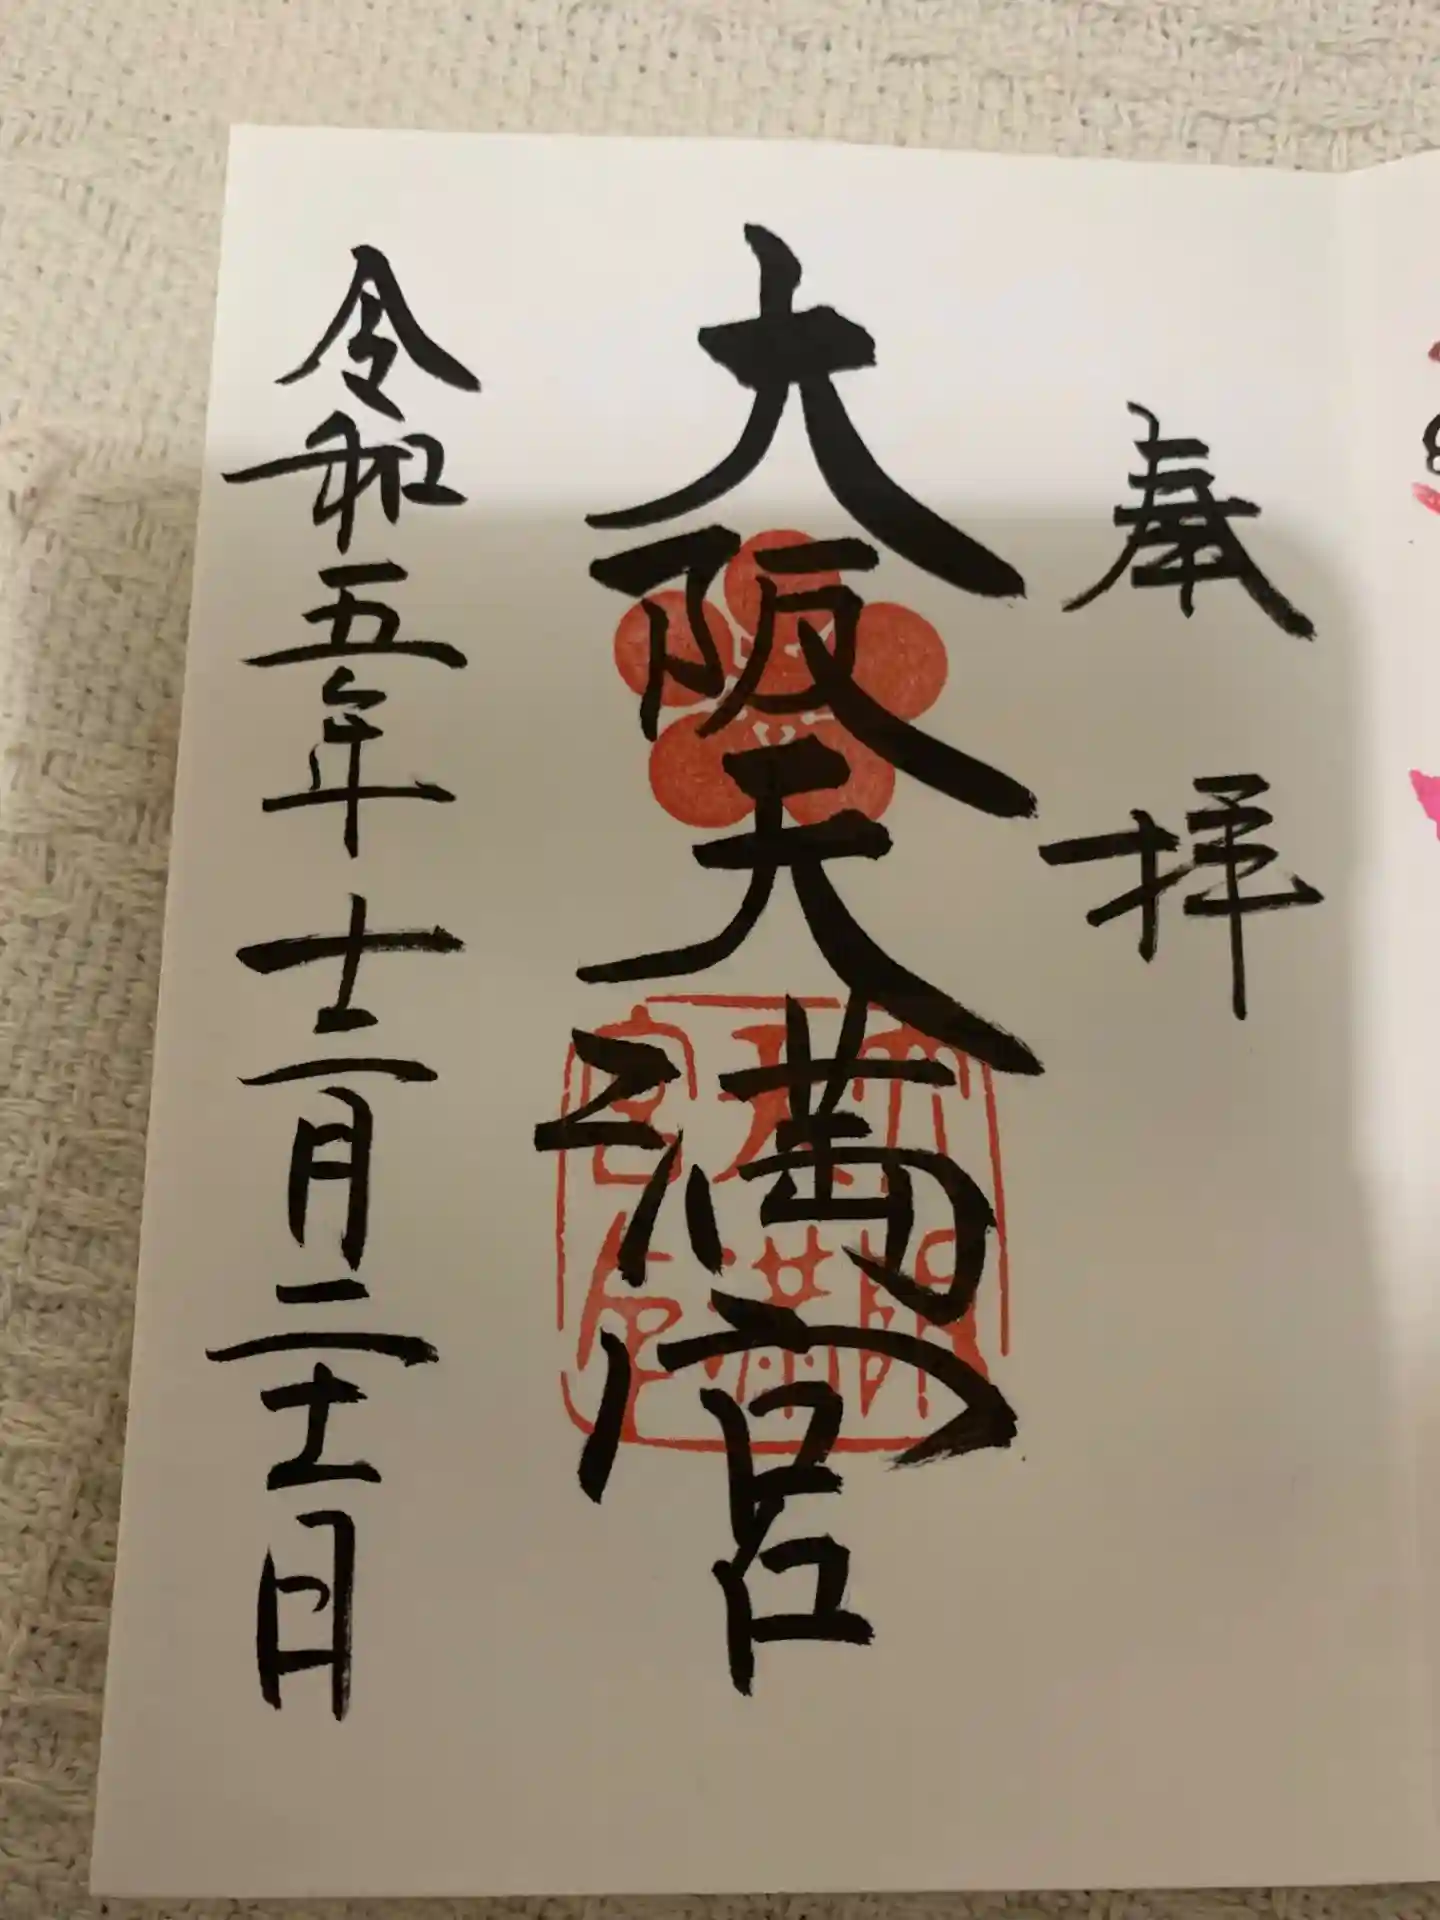 奉拝
大阪天満宮
大阪
天満
宮印
令和五年十二月二十一日